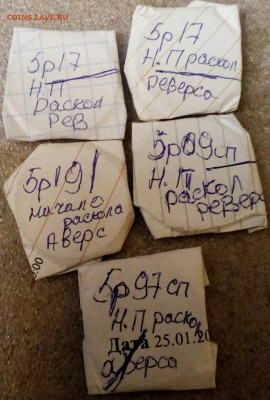 COINS.LAVE.RU
5р17
Н.П
раскол
рев
5р17
Н.П раскол
реверса
5р191
начало
раскола
Аверс
5р09сп
Н.П
раскол
реверс
5р97сп
Н.П раскол
Дата 25.01.20
аверса